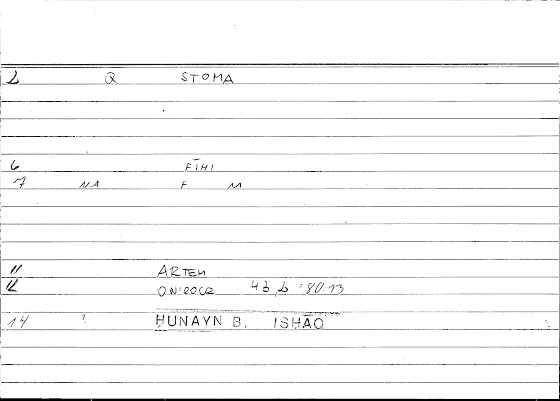 2 Q STOMA
6 FĪHI
7 NA F M
11 ARTEM
12 ONIROCR 4 b,2 = 80.13
14 ? HUNAYN B. ISHĀQ